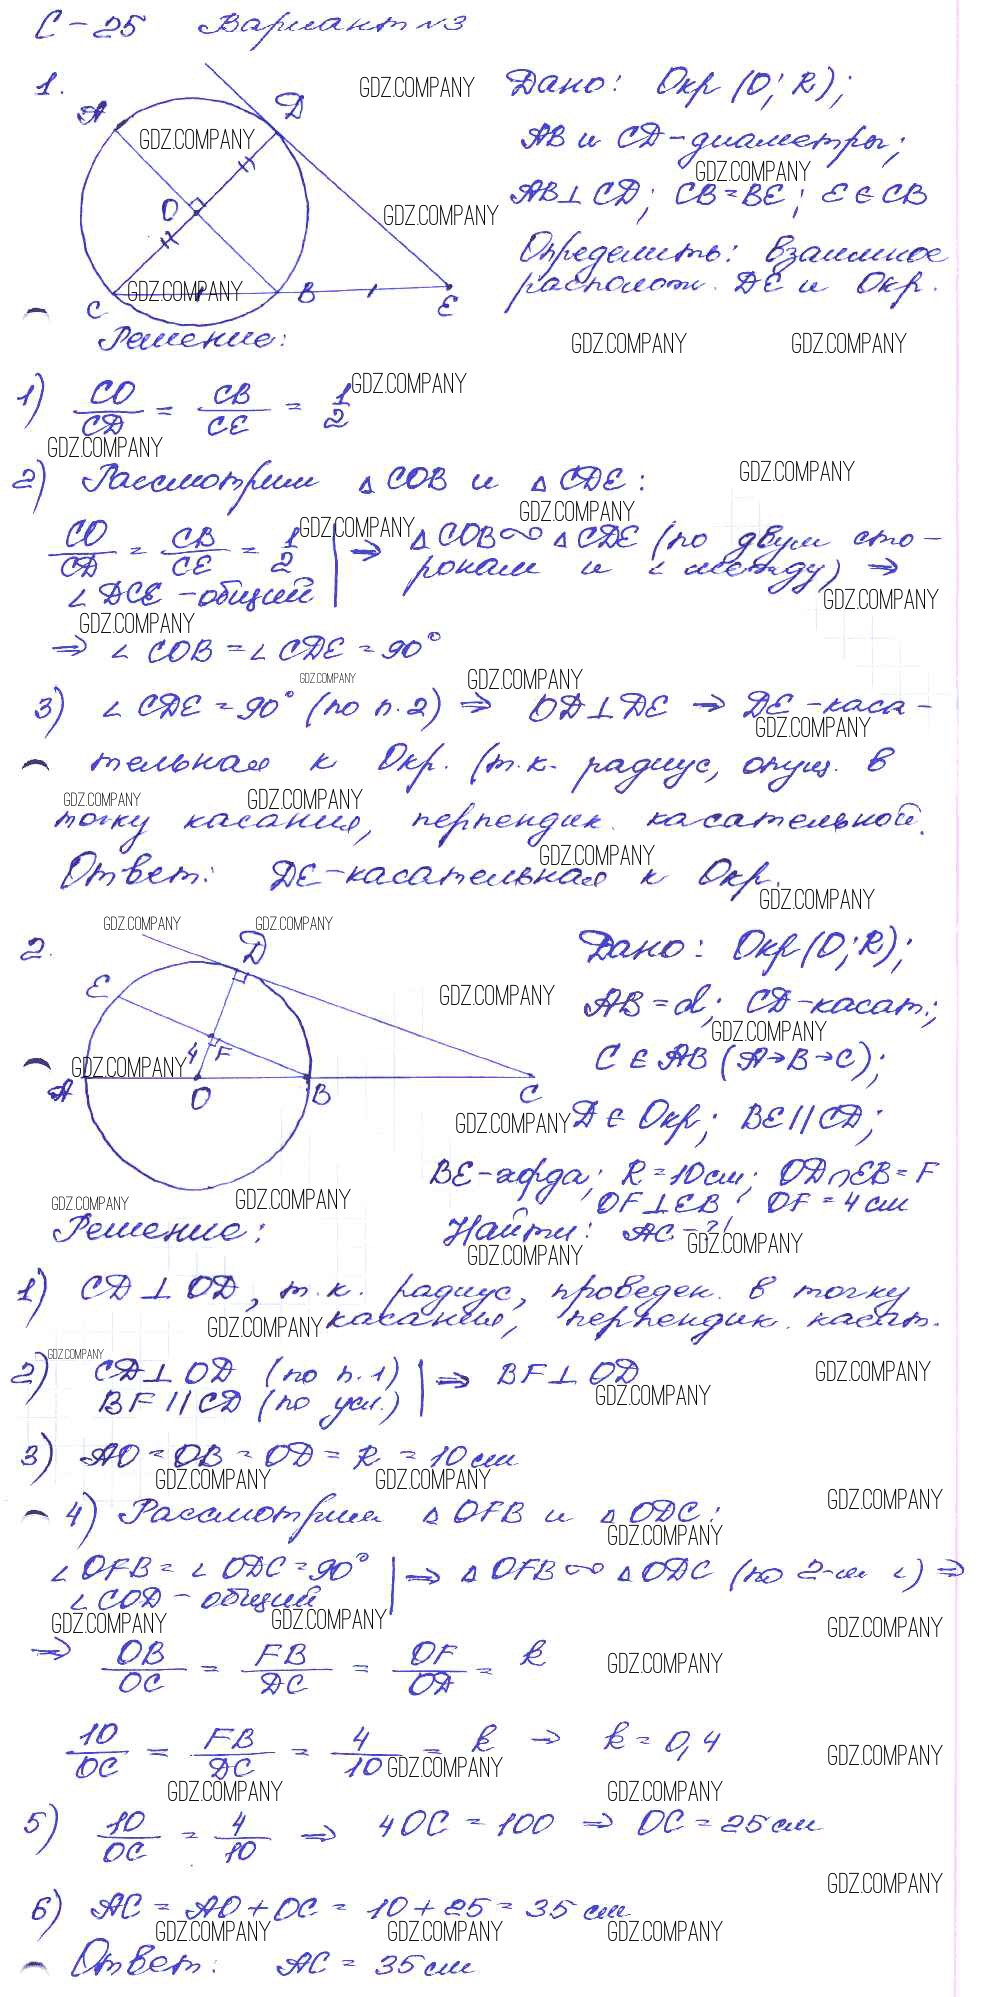 С-25 Вариант №3
1.
A
D
O
C
B
E
GDZ.COMPANY
Дано: Окр (О; R);
AB и CD - диаметры;
AB⊥CD; CB=BE; E∈CB
Определить: взаимное
располож. DE и Окр.
Решение:
1) CO/CD = CB/CE = 1/2
2) Рассмотрим △COB и △CDE:
CO/CD = CB/CE = 1/2 | ⇒ △COB∾△CDE (по двум сто-
∠DCE - общий | ронам и ∠ между) ⇒
⇒ ∠COB = ∠CDE = 90°
3) ∠CDE = 90° (по п.2) ⇒ OD⊥DE ⇒ DE - каса-
тельная к Окр. (т.к. радиус, опущ. в
точку касания, перпендик. касательной.
Ответ: DE - касательная к Окр.
2.
E
D
4
F
A
O
B
C
Дано: Окр (О; R);
AB = d; CD - касат.;
C∈AB (A→B→C);
D∈Окр; BE||CD;
BE - хорда; R=10см; OD∩EB=F
OF⊥EB; OF=4см
Найти: AC - ?
Решение:
1) CD⊥OD, т.к. радиус, проведен. в точку
касания, перпендик. касат.
2) CD⊥OD (по п.1) | ⇒ BF⊥OD
BF||CD (по усл.)
3) AO = OB = OD = R = 10см
4) Рассмотрим △OFB и △ODC:
∠OFB = ∠ODC = 90° | ⇒ △OFB∾△ODC (по 2-м ∠) ⇒
∠COD - общий
⇒ OB/OC = FB/DC = OF/OD = k
10/OC = FB/DC = 4/10 = k ⇒ k = 0,4
5) 10/OC = 4/10 ⇒ 4OC = 100 ⇒ OC = 25см
6) AC = AO + OC = 10 + 25 = 35 см
Ответ: AC = 35 см